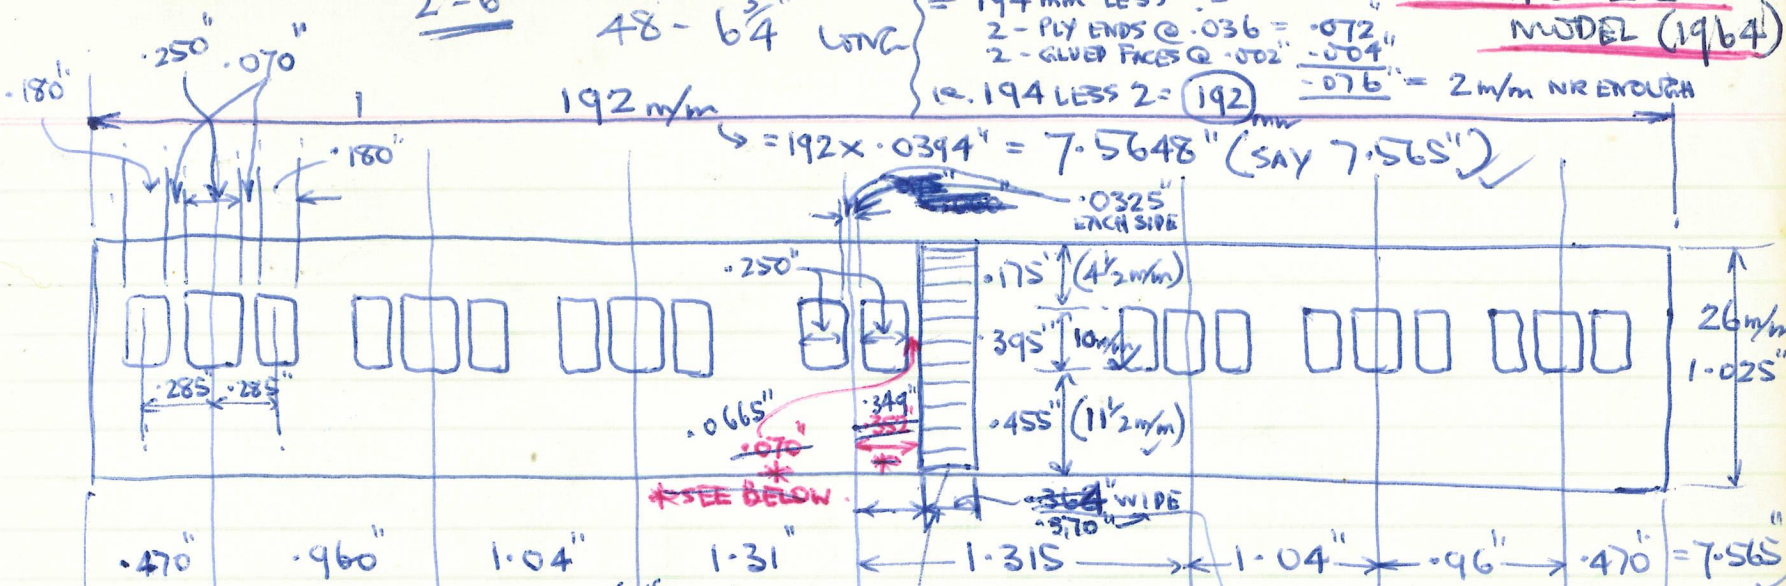 2-6
48 - 6¾" LONG
= 194 mm LESS
2 - PLY ENDS @ .036 = .072"
2 - GLUED FACES @ .002" - .004"
.076" = 2 m/m NR ENOUGH
ie. 194 LESS 2 = 192 mm
MODEL (1964)
.250" .070"
.180"
192 m/m
= 192 x .0394" = 7.5648" (SAY 7.565")
.180"
.0325"
EACH SIDE
.250"
.175" (4½ m/m)
.395" 10m/m
26 m/m
1.025"
.285" .285"
.0665"
.070"
.349"
.455" (11½ m/m)
*SEE BELOW
.364" WIDE
.570"
.470" .960" 1.04" 1.31" 1.315 1.04" .96" .470" = 7.565"